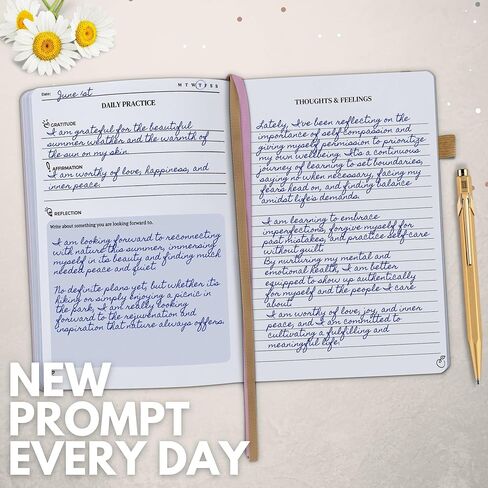 Date: June 1st
M T W T F S S
DAILY PRACTICE
GRATITUDE
I am grateful for the beautiful
summer weather and the warmth of
the sun on my skin.
AFFIRMATION
I am worthy of love, happiness, and
inner peace.
REFLECTION
Write about something you are looking forward to.
I am looking forward to reconnecting
with nature this summer, immersing
myself in its beauty and finding much
needed peace and quiet.
No definite plans yet, but whether it's
hiking or simply enjoying a picnic in
the park, I am really looking
forward to the rejuvenation and
inspiration that nature always offers.
THOUGHTS & FEELINGS
Lately, I've been reflecting on the
importance of self-compassion and
giving myself permission to prioritize
my own wellbeing. It's a continuous
journey of learning to set boundaries,
saying no when necessary, facing my
fears head on, and finding balance
amidst life's demands.
I am learning to embrace
imperfections, forgive myself for
past mistakes, and practice self-care
without guilt.
By nurturing my mental and
emotional health, I am better
equipped to show up authentically
for myself and the people I care
about.
I am worthy of love, joy, and inner
peace, and I am committed to
cultivating a fulfilling and
meaningful life.
NEW
PROMPT
EVERY DAY